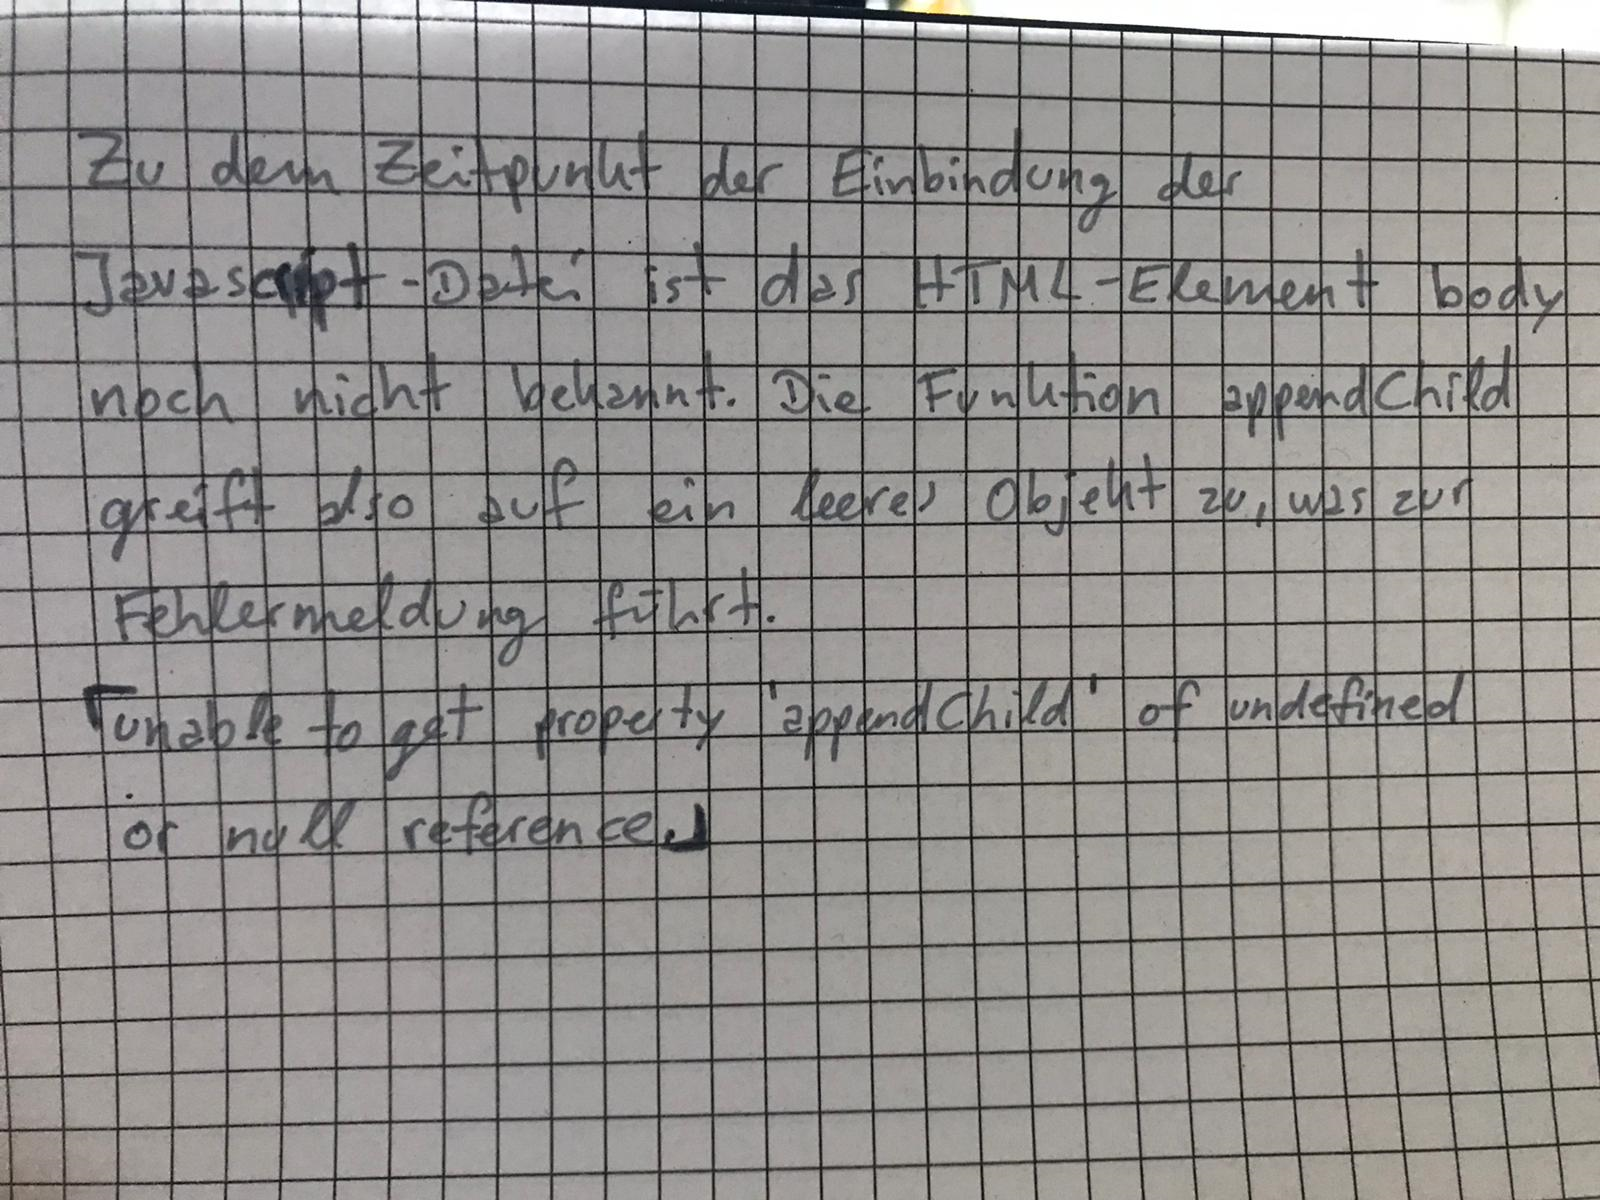 Zu dem Zeitpunkt der Einbindung der
Javascript-Datei ist das HTML-Element body
noch nicht bekannt. Die Funktion appendChild
greift also auf ein leeres Objekt zu, was zur
Fehlermeldung führt.
「unable to get property 'appendChild' of undefined
or null reference.」